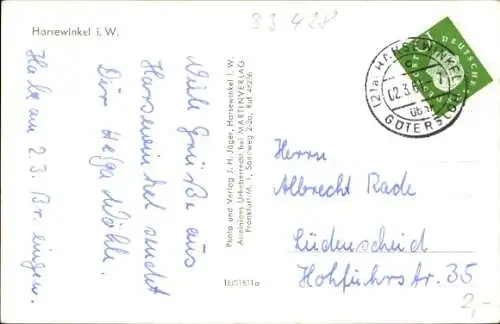 33 428
Harsewinkel i. W.
Viele Grüße aus
Harsewinkel sendet
Dir Helga Wöhle.
Habe am 2.3.
Photo und Verlag J. H. Jäger, Harsewinkel i. W.
Alleiniges Urheberrecht bei MARTINVERLAG
Frankfurt/M. 1, Saarweg
DEUTSCHE
(21a) HARSEWINKEL
02.3.6
GÜTERSLOH
Herrn
Albrecht Rade
Lüdenscheid
Hohfuhrstr. 35
2,-